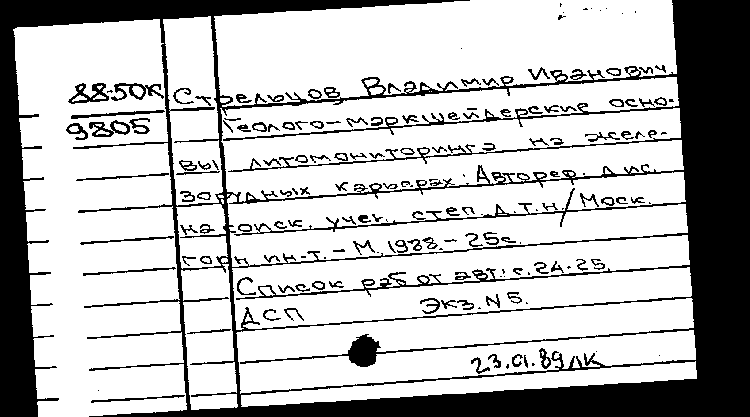 88-50К Стрельцов Владимир Иванович.
9805 Геолого-маркшейдерские осно-
вы литомониторинга на желе-
зорудных карьерах: Автореф. дис.
на соиск. учен. степ. д.т.н/Моск.
горн. ин-т. - М. 1988. - 25с.
Список работ авт.: с. 24-25.
ДСП Экз. N5.
23.01.89 ЛК